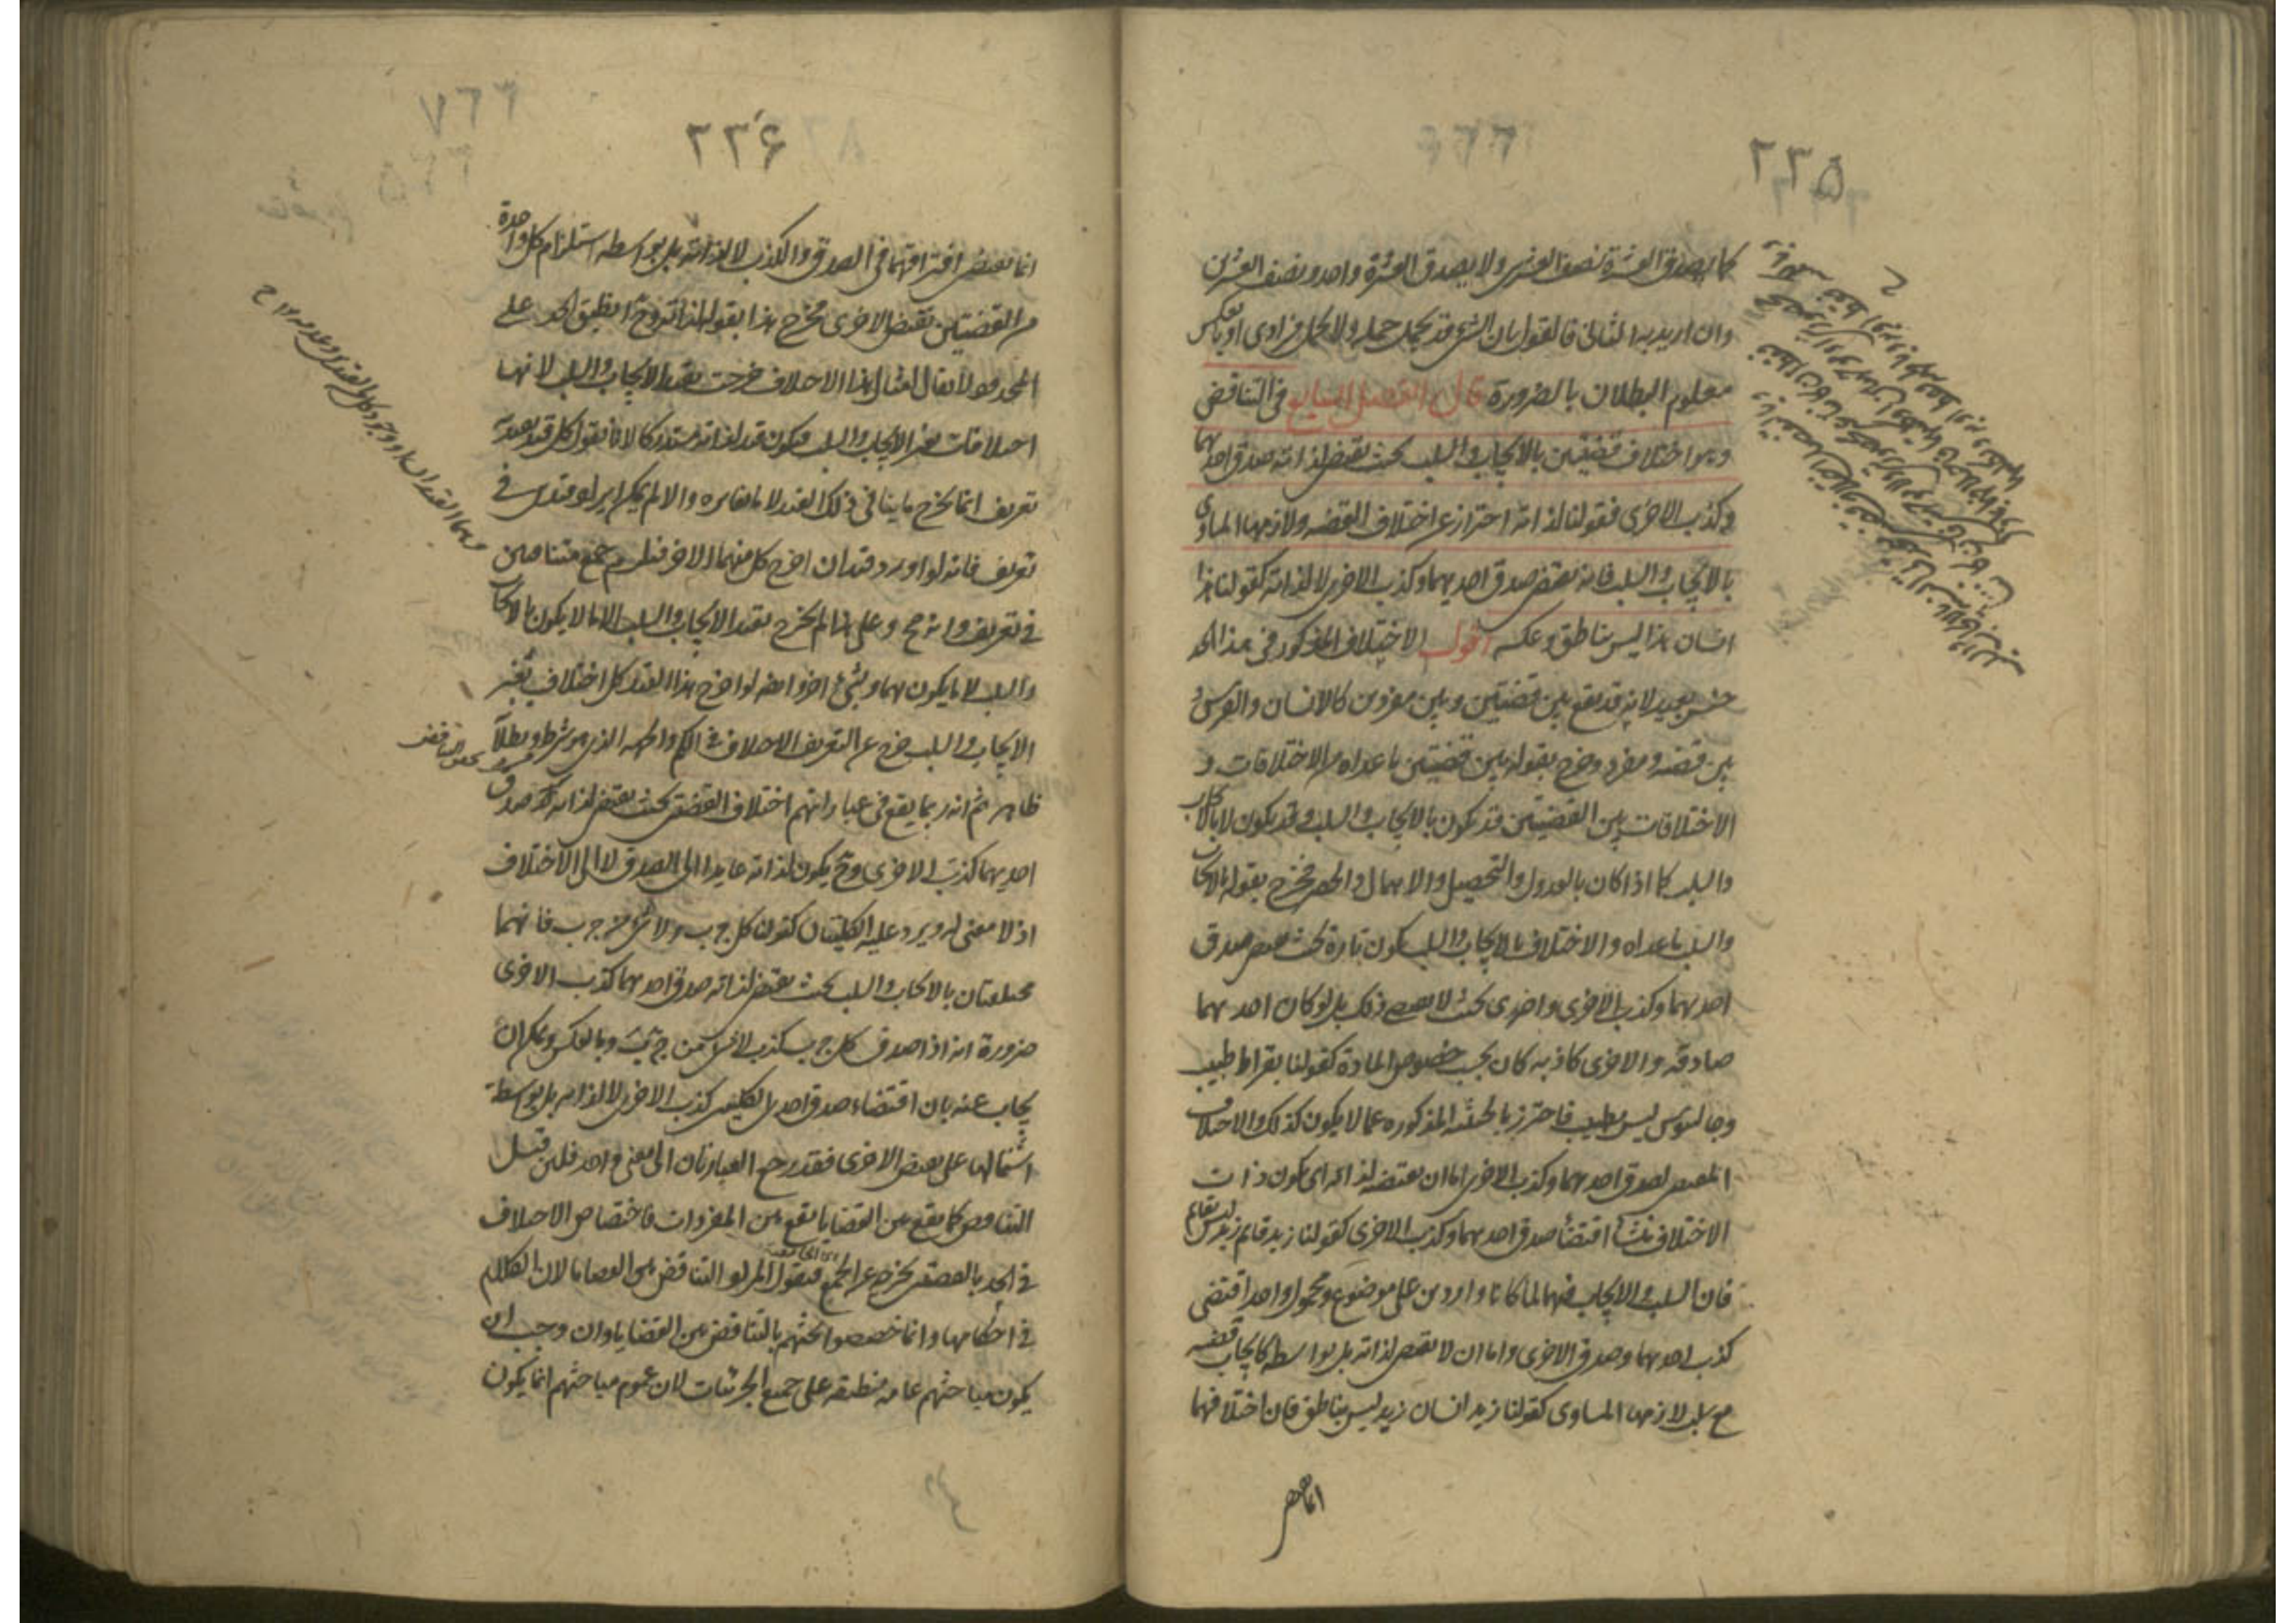 ٢٣٥
كما يصدق العشرة نصف العشرين ولا يصدق العشرة واحد ونصف العشرين
وان اريد به الثانى فالقول بان الشىء قد يحمل جملة ولا يحمل فرادى او بالعكس
معلوم البطلان بالضرورة قال الفصل السابع فى التناقض
وهو اختلاف قضيتين بالايجاب والسلب بحيث يقتضى لذاته صدق احديهما
وكذب الاخرى فقولنا لذاته احتراز عن اختلاف القضيه ولازمها المساوى
بالايجاب والسلب فانه يقتضى صدق احديهما وكذب الاخرى لا لذاته كقولنا هذا
انسان هذا ليس بناطق وعكسه اقول الاختلاف المذكور فى هذا الحد
جنس بعيد لانه قد يقع بين قضيتين وبين مفردين كالانسان والفرس و
بين قضيه ومفرد وخرج بقوله بين قضيتين ما عداه من الاختلافات و
الاختلافات بين القضيتين قد يكون بالايجاب والسلب وقد يكون لا بالايجاب
والسلب كما اذا كان بالعدول والتحصيل والاهمال والحصر فخرج بقوله بالايجاب
والسلب ما عداه والاختلاف بالايجاب والسلب يكون تارة بحيث يقتضى صدق
احديهما وكذب الاخرى واخرى بحيث لا يقتضى ذلك بل لو كان احديهما
صادقه والاخرى كاذبه كان بحسب خصوص المادة كقولنا بقراط طبيب
وجالينوس ليس بطبيب فاحترز بالحيثيه المذكوره عما لا يكون كذلك والاختلاف
المقتضى لصدق احديهما وكذب الاخرى اما ان يقتضيه لذاته اى يكون ذات
الاختلاف منشأ اقتضاء صدق احديهما وكذب الاخرى كقولنا زيد قائم زيد ليس بقائم
فان السلب والايجاب فيهما لما كانا واردين على موضوع ومحمول واحد اقتضى
كذب احديهما وصدق الاخرى واما ان لا يقتضى لذاته بل بواسطه كايجاب قضيه
مع سلب لازمها المساوى كقولنا زيد انسان زيد ليس بناطق فان اختلافهما
انما يقتضى
٢٣۶
انما يقتضى افتراقهما فى الصدق والكذب لا لذاته بل بواسطه استلزام كل واحدة
من القضيتين نقيض الاخرى فخرج هذا بقوله لذاته وح انطبق الحد على
المحدود لا يقال امثال هذا الاختلاف خرجت بقيد الايجاب والسلب لانها
اختلافات بغير الايجاب والسلب فيكون قيد لذاته مستدركا لانا نقول كل قيد يعتد به
تعريف انما يخرج ما ينافى ذلك القيد لا ما يغايره والا لم يمكن ايراد قيدين فى
تعريف فانه لو اورد قيدان اخرج كل منهما الاخر فيلزم جمع متنافيين
فى تعريف وانه مح وعلى هذا لم يخرج بقيد الايجاب والسلب الا ما لا يكون بالايجاب
والسلب لا ما يكون بهما وبشىء اخر وايضا لو اخرج هذا القيد كل اختلاف بغير
الايجاب والسلب خرج عن التعريف الاختلاف فى الكم والجهه الذى هو شرط وبطلانه
ظاهر ثم انه ربما يقع فى عباراتهم اختلاف القضيتين بحيث يقتضى لذاته صدق
احديهما كذب الاخرى وح يكون لذاته عايدا الى الصدق لا الى الاختلاف
اذ لا معنى له ويرد عليه الكليتان كقولنا كل ج ب ولا شىء من ج ب فانهما
مختلفتان بالايجاب والسلب بحيث يقتضى لذاته صدق احديهما كذب الاخرى
ضرورة انه اذا صدق كل ج ب كذب لا شىء من ج ب وبالعكس ويمكن ان
يجاب عنه بان اقتضاء صدق احدى الكليتين كذب الاخرى لا لذاته بل بواسطة
اشتمالها على نقيض الاخرى فقد رجع العبارتان الى معنى واحد فلئن قيل
التناقض كما يقع بين القضايا يقع بين المفردات فاختصاص الاختلاف
فى الحد بالقضيتين يخرجه عن الجمع فنقول المراد التناقض بين القضايا لان الكلام
فى احكامها وانما خصصوا بحثهم بالتناقض بين القضايا وان وجب ان
يكون مباحثهم عامه منطبقه على جميع الجزئيات لان عموم مباحثهم انما يكون